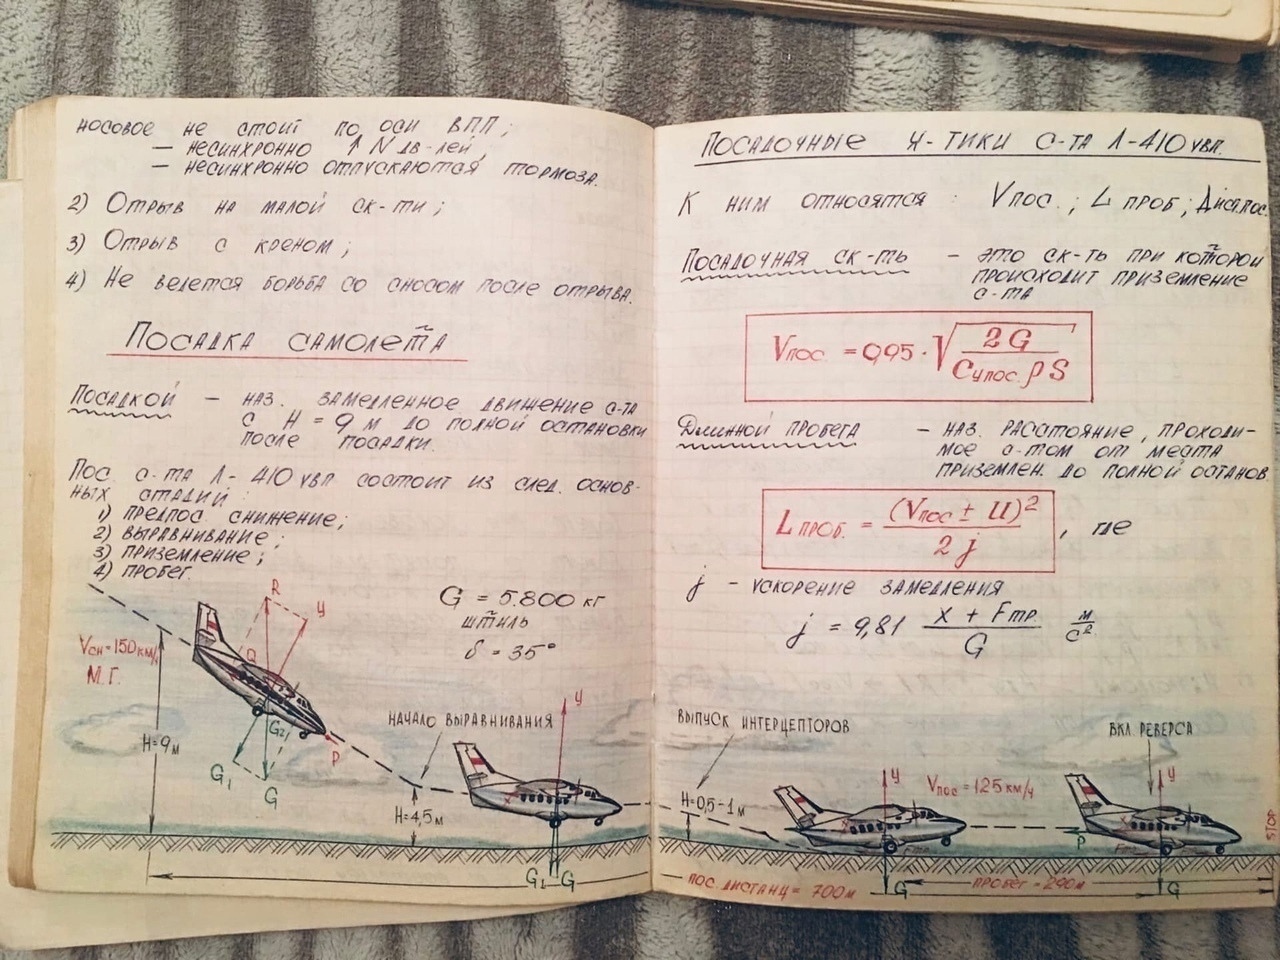 носовое не стоит по оси ВПП;
— несинхронно ↑ N дв-лей,
— несинхронно отпускаются тормоза.
2) Отрыв на малой ск-ти;
3) Отрыв с креном;
4) Не ведется борьба со сносом после отрыва.
Посадка самолета
Посадкой — наз. замедленное движение с-та
с H = 9 м до полной остановки
после посадки.
Пос. с-та Л-410 увп состоит из след. основ-
ных стадий:
1) предпос. снижение;
2) выравнивание;
3) приземление;
4) пробег.
G = 5.800 кг
штиль
δ = 35°
R
У
Vсн = 150 км/ч
М.Г.
Q
H = 9 м
G2
P
G1
G
начало выравнивания
H = 4,5 м
У
X
G1 G
Посадочные х-тики с-та Л-410 увп.
К ним относятся: Vпос.; L проб; Дист.пос.
Посадочная ск-ть — это ск-ть при которой
происходит приземление
с-та
Vпос. = 0,95 · √ 2G / Cупос. ρ S
Длинной пробега — наз. расстояние, проходи-
мое с-том от места
приземлен. до полной останов
L проб. = (Vпос ± U)² / 2 j , где
j — ускорение замедления
j = 9,81 X + Fтр. / G м/с²
выпуск интерцепторов
вкл. реверса
H = 0,5 - 1 м
У
Vпос = 125 км/ч
У
X
P
X
Fтр
STOP
пос. дистанц = 700 м
G
пробег = 290 м
G